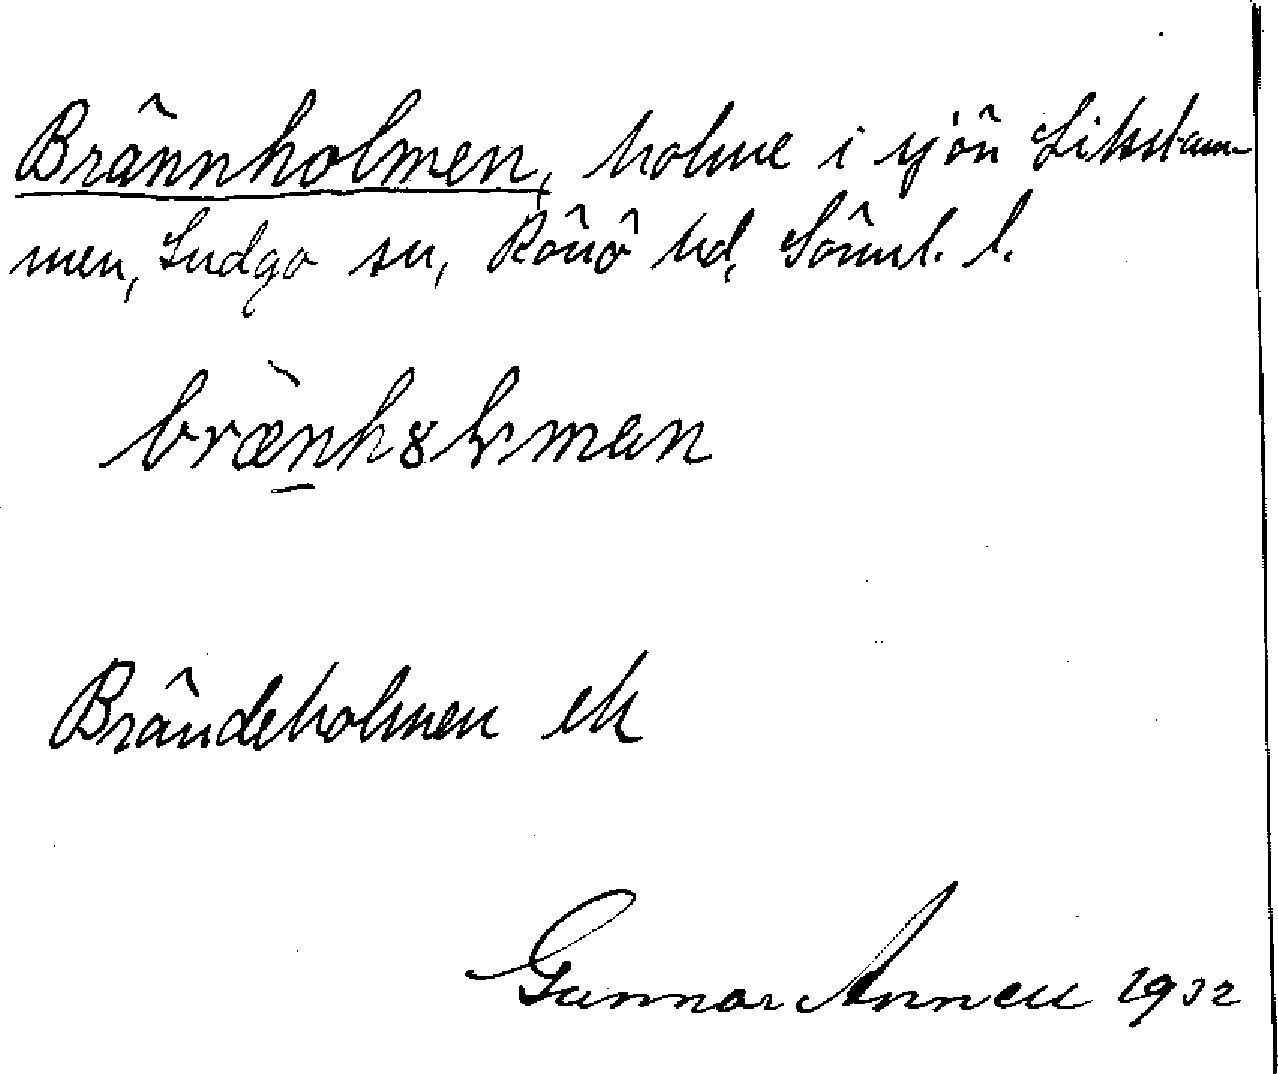 Brännholmen, holme i sjön Likstam-
men, Ludgo sn, Rönö hd, Sörml. l.
bræ̀nhɔlmən
Brändeholmen ek
Gunnar Annell 1932